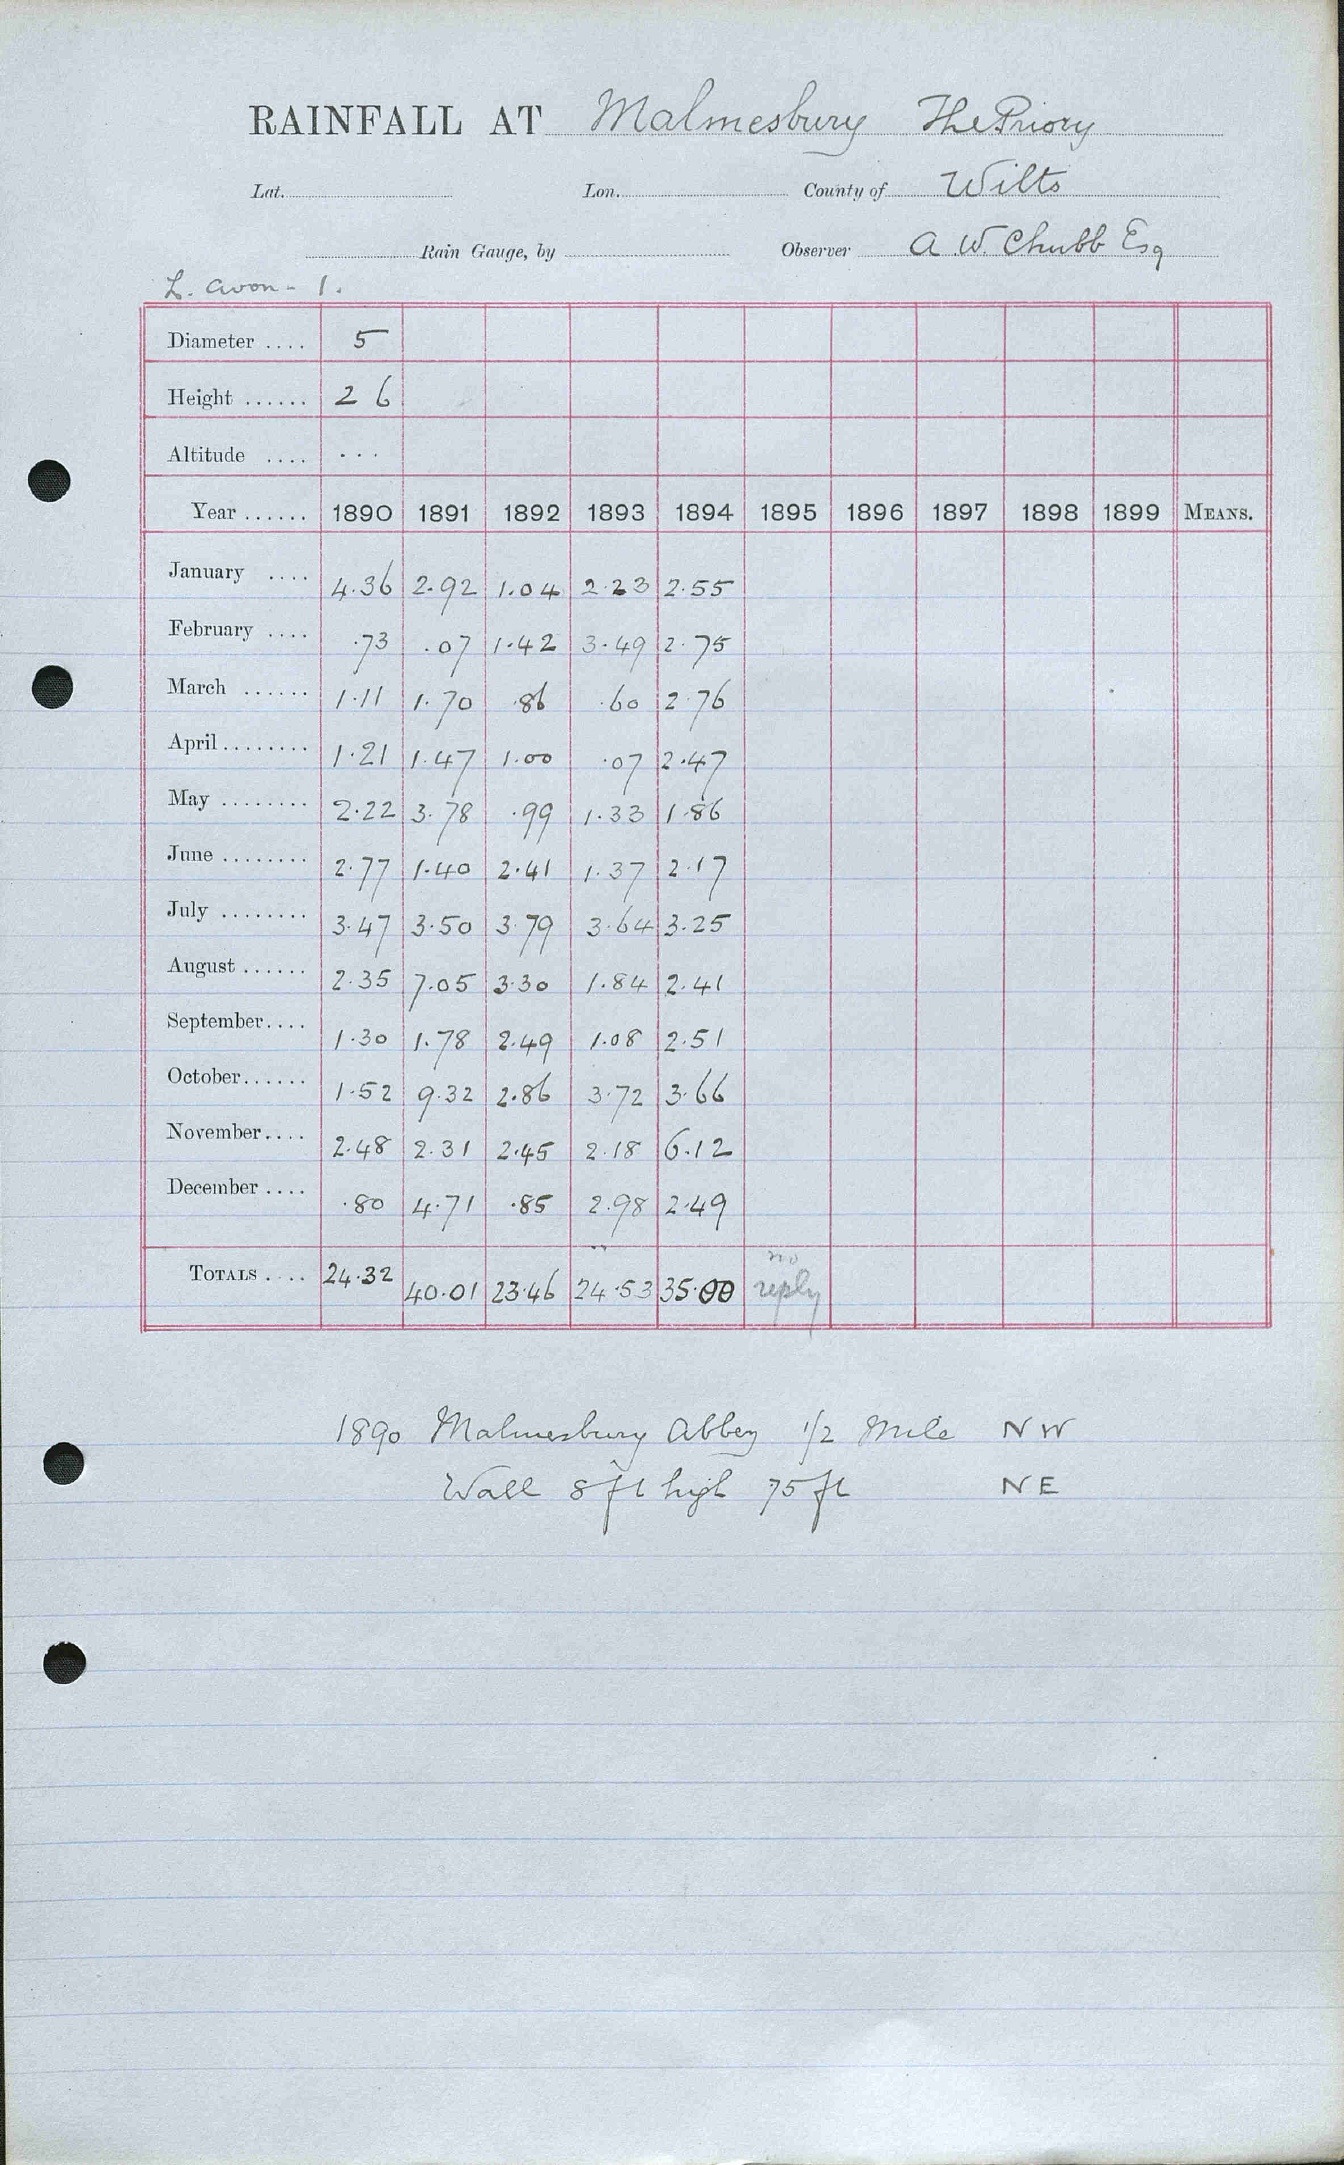 RAINFALL AT Malmesbury The Priory
Lat. Lon. County of Wilts
Rain Gauge, by Observer A. W. Chubb Esq
L. Avon - 1.
Diameter .... 5
Height ...... 2 6
Altitude .... ...
Year ...... 1890 1891 1892 1893 1894 1895 1896 1897 1898 1899 MEANS.
January .... 4.36 2.92 1.04 2.23 2.55
February .... .73 .07 1.42 3.49 2.75
March ...... 1.11 1.70 .86 .60 2.76
April ........ 1.21 1.47 1.00 .07 2.47
May ........ 2.22 3.78 .99 1.33 1.86
June ........ 2.77 1.40 2.41 1.37 2.17
July ........ 3.47 3.50 3.79 3.64 3.25
August ...... 2.35 7.05 3.30 1.84 2.41
September .... 1.30 1.78 2.49 1.08 2.51
October ...... 1.52 9.32 2.86 3.72 3.66
November .... 2.48 2.31 2.45 2.18 6.12
December .... .80 4.71 .85 2.98 2.49
TOTALS .... 24.32 40.01 23.46 24.53 35.00 no reply
1890 Malmesbury Abbey 1/2 Mile NW
Wall 8 ft high 75 ft NE